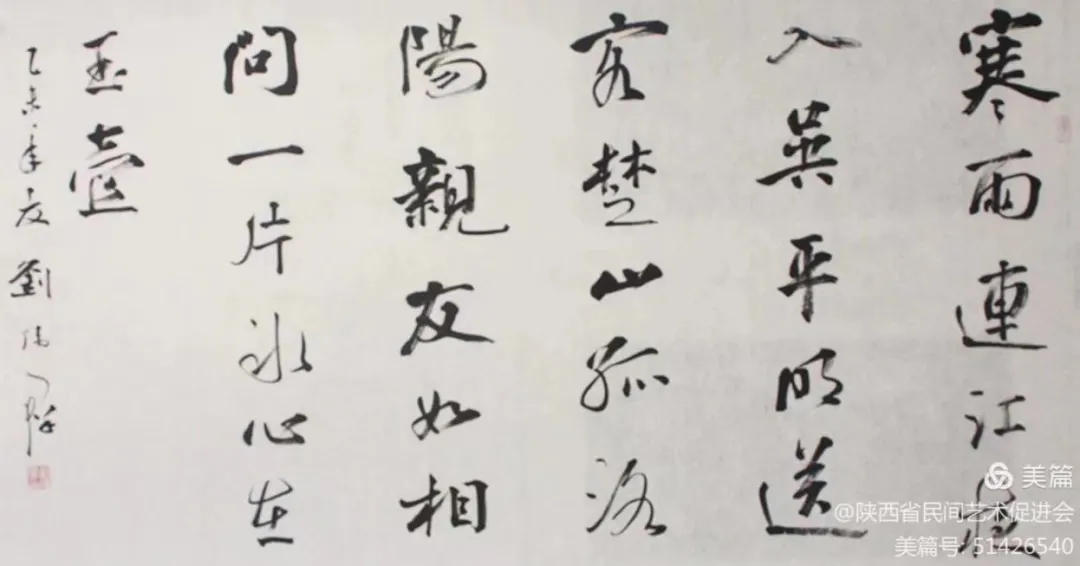 寒雨連江夜
入吳平明送
客楚山孤洛
陽親友如相
問一片冰心在
玉壺
乙未年夏 劉
美篇
@陕西省民间艺术促进会
美篇号: 51426540